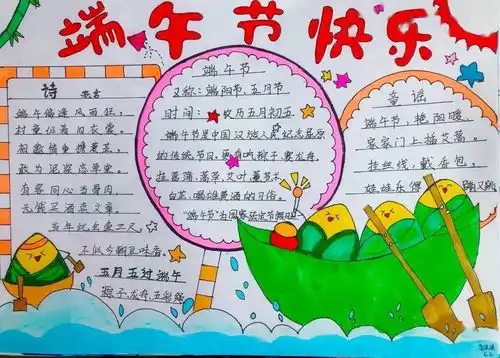 端午节快乐
诗
端午偏逢风雨狂,
村童仍着旧衣裳。
相邀情重携蓑笠,
敢为泥深恋草堂。
有客同心当骨肉,
无钱买酒卖文章。
当年此会鱼三尺,
不似今朝豆味香。
五月五过端午
粽子、龙舟、五彩绳
端午节
又称:端阳节、五月节
时间:农历五月初五
端午节是中国汉族人民纪念屈原
的传统节日,更有吃粽子,赛龙舟,
挂菖蒲、蒿草、艾叶,薰苍术、
白芷,喝雄黄酒的习俗。
"端午节"为国家法定节假日
童谣
端午节,艳阳暖,
家家门上插艾蒿。
挂丝线,戴香包,
娃娃乐得蹦又跳